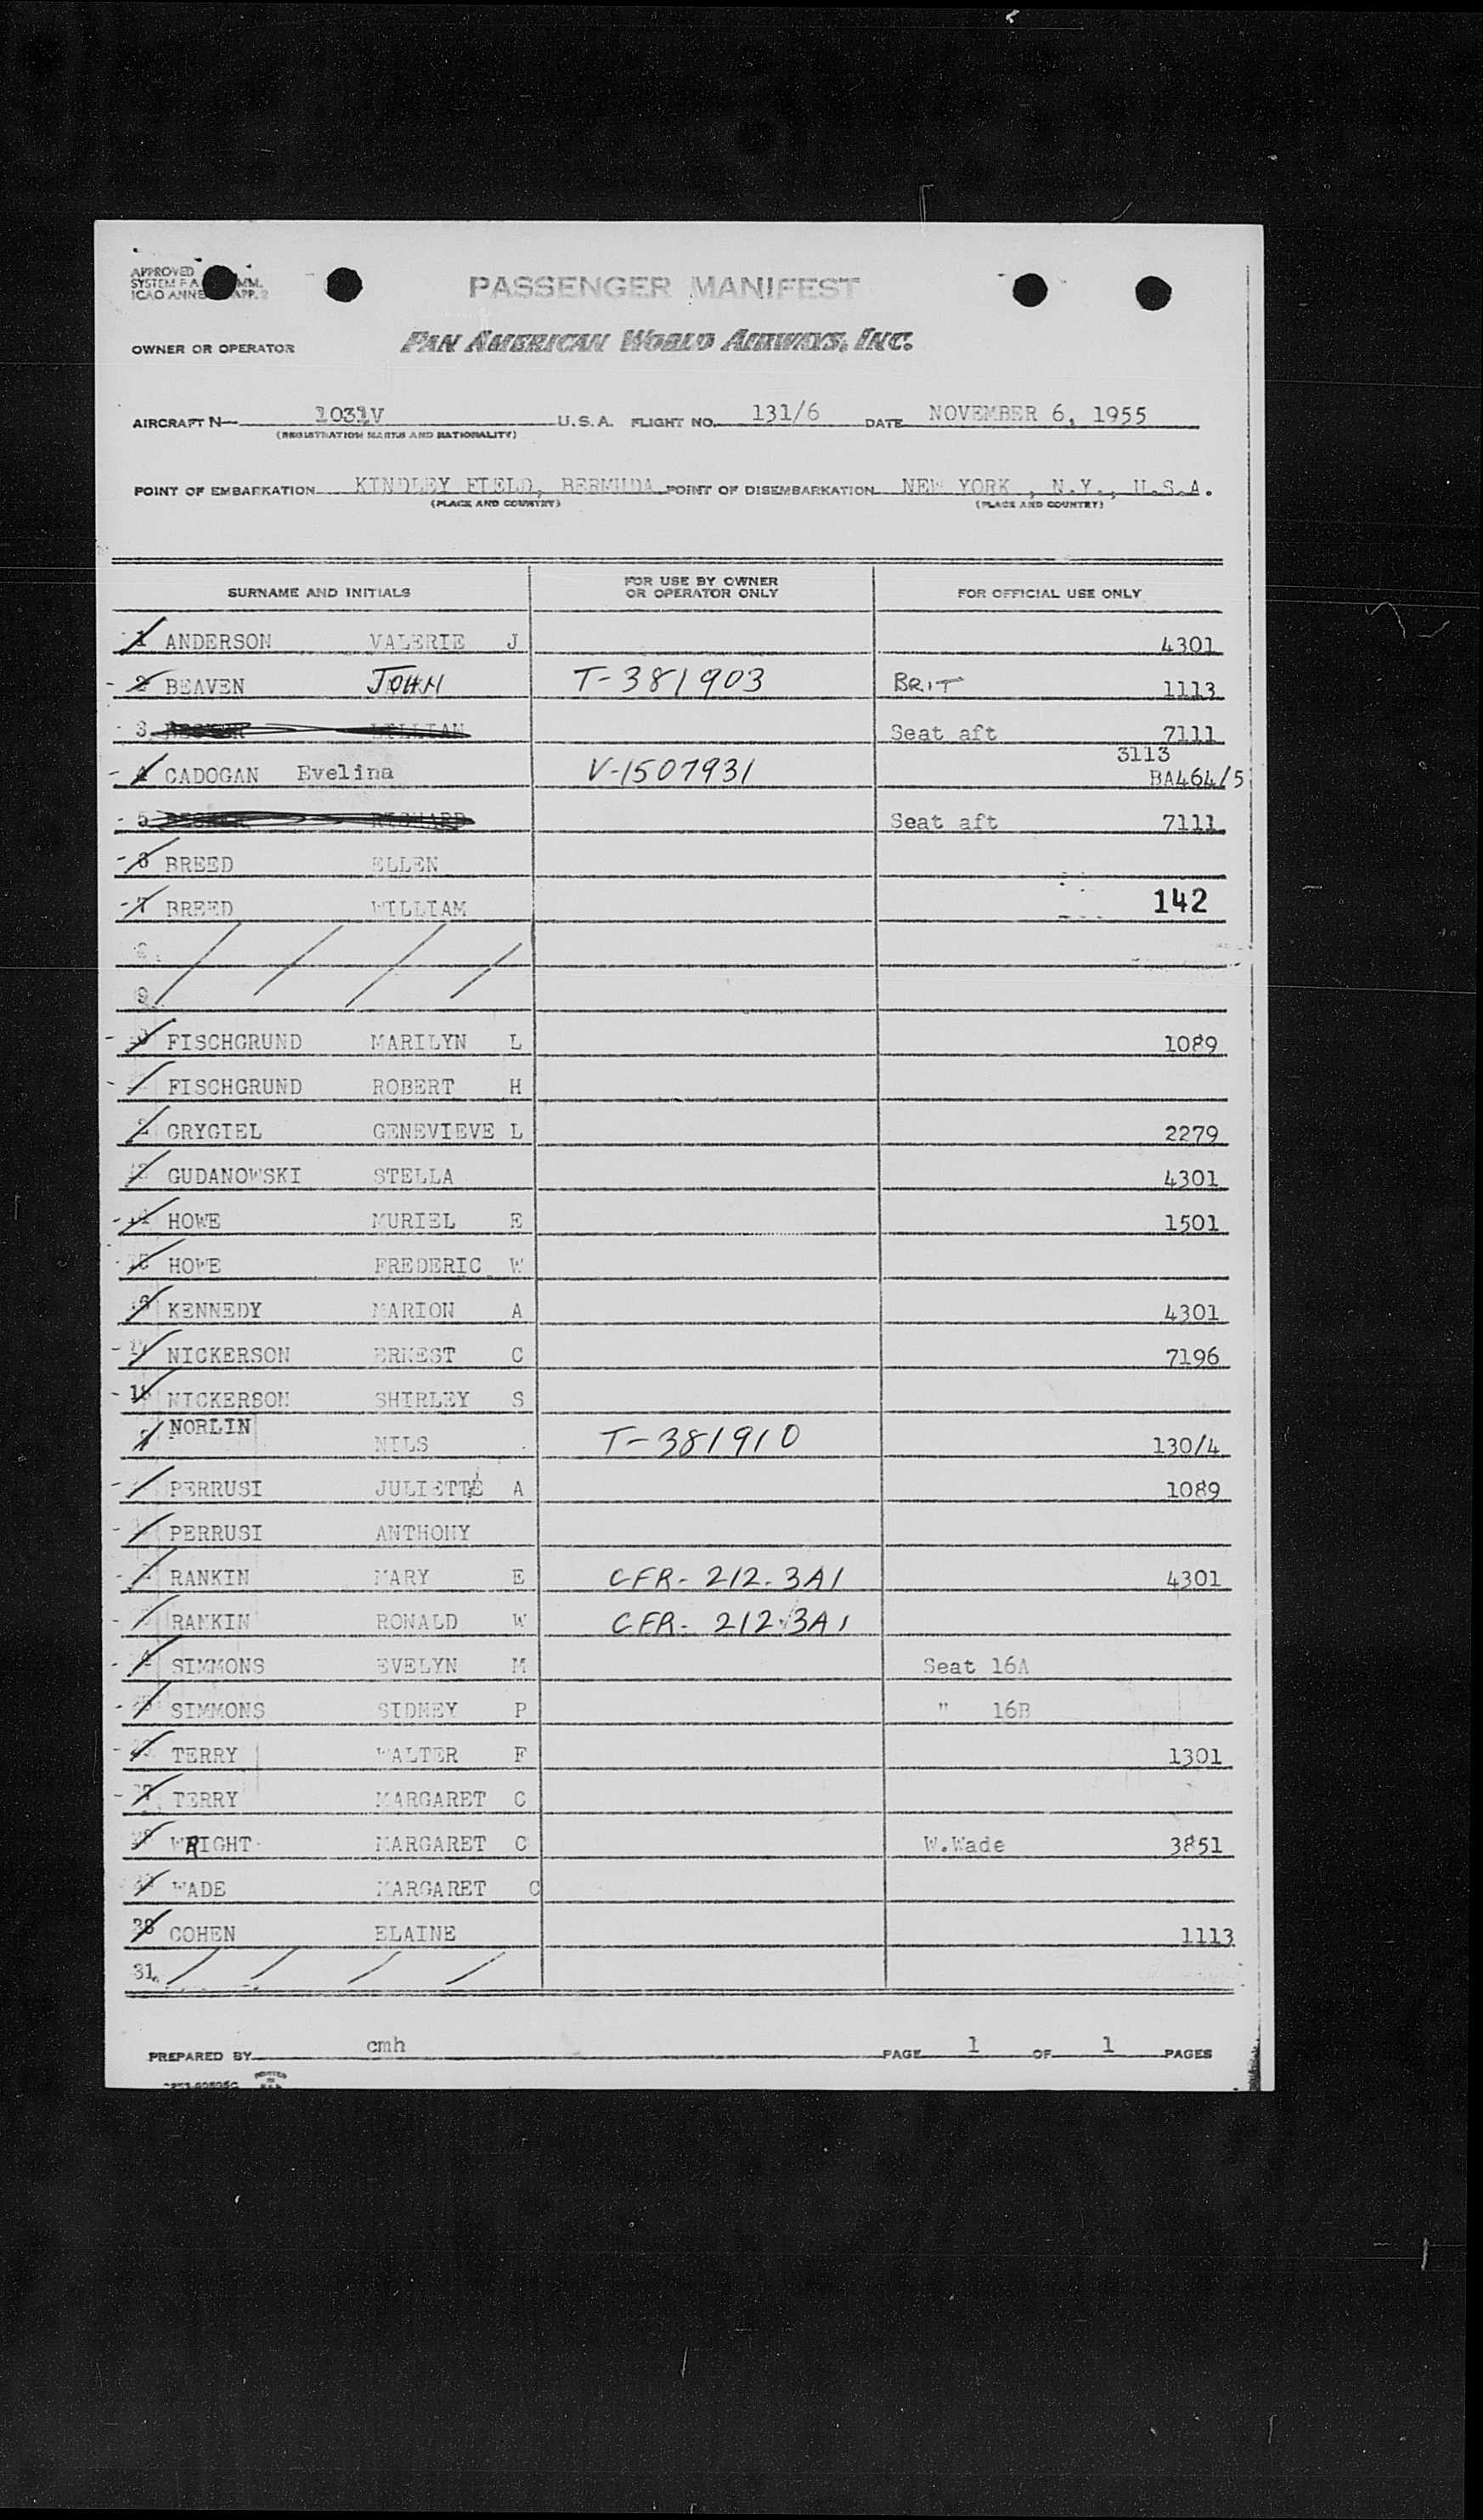 APPROVED
SYSTEM F A MM.
ICAO ANNE APP. 2
PASSENGER MANIFEST
OWNER OR OPERATOR PAN AMERICAN WORLD AIRWAYS, INC.
AIRCRAFT N 1031V U.S.A. FLIGHT NO. 131/6 DATE NOVEMBER 6, 1955
(REGISTRATION MARKS AND NATIONALITY)
POINT OF EMBARKATION KINDLEY FIELD, BERMUDA POINT OF DISEMBARKATION NEW YORK , N.Y., U.S.A.
(PLACE AND COUNTRY) (PLACE AND COUNTRY)
SURNAME AND INITIALS FOR USE BY OWNER OR OPERATOR ONLY FOR OFFICIAL USE ONLY
1 ANDERSON VALERIE J 4301
2 BEAVEN JOHN T-381903 BRIT 1113
3 LILLIAN Seat aft 7111
3113
4 CADOGAN Evelina V-1507931 BA464/5
5 RICHARD Seat aft 7111
6 BREED ELLEN
7 BREED WILLIAM 142
8
9
FISCHGRUND MARILYN L 1089
FISCHGRUND ROBERT H
2 GRYGIEL GENEVIEVE L 2279
GUDANOWSKI STELLA 4301
14 HOWE MURIEL E 1501
15 HOWE FREDERIC W
16 KENNEDY MARION A 4301
17 NICKERSON ERNEST C 7196
18 NICKERSON SHIRLEY S
NORLIN NILS T-381910 130/4
PERRUSI JULIETTE A 1089
PERRUSI ANTHONY
RANKIN MARY E CFR- 212.3A1 4301
RANKIN RONALD W CFR- 212.3A1
SIMMONS EVELYN M Seat 16A
SIMMONS SIDNEY P " 16B
TERRY WALTER F 1301
TERRY MARGARET C
WRIGHT MARGARET C W.Wade 3851
WADE MARGARET C
COHEN ELAINE 1113
31.
PREPARED BY cmh PAGE 1 OF 1 PAGES